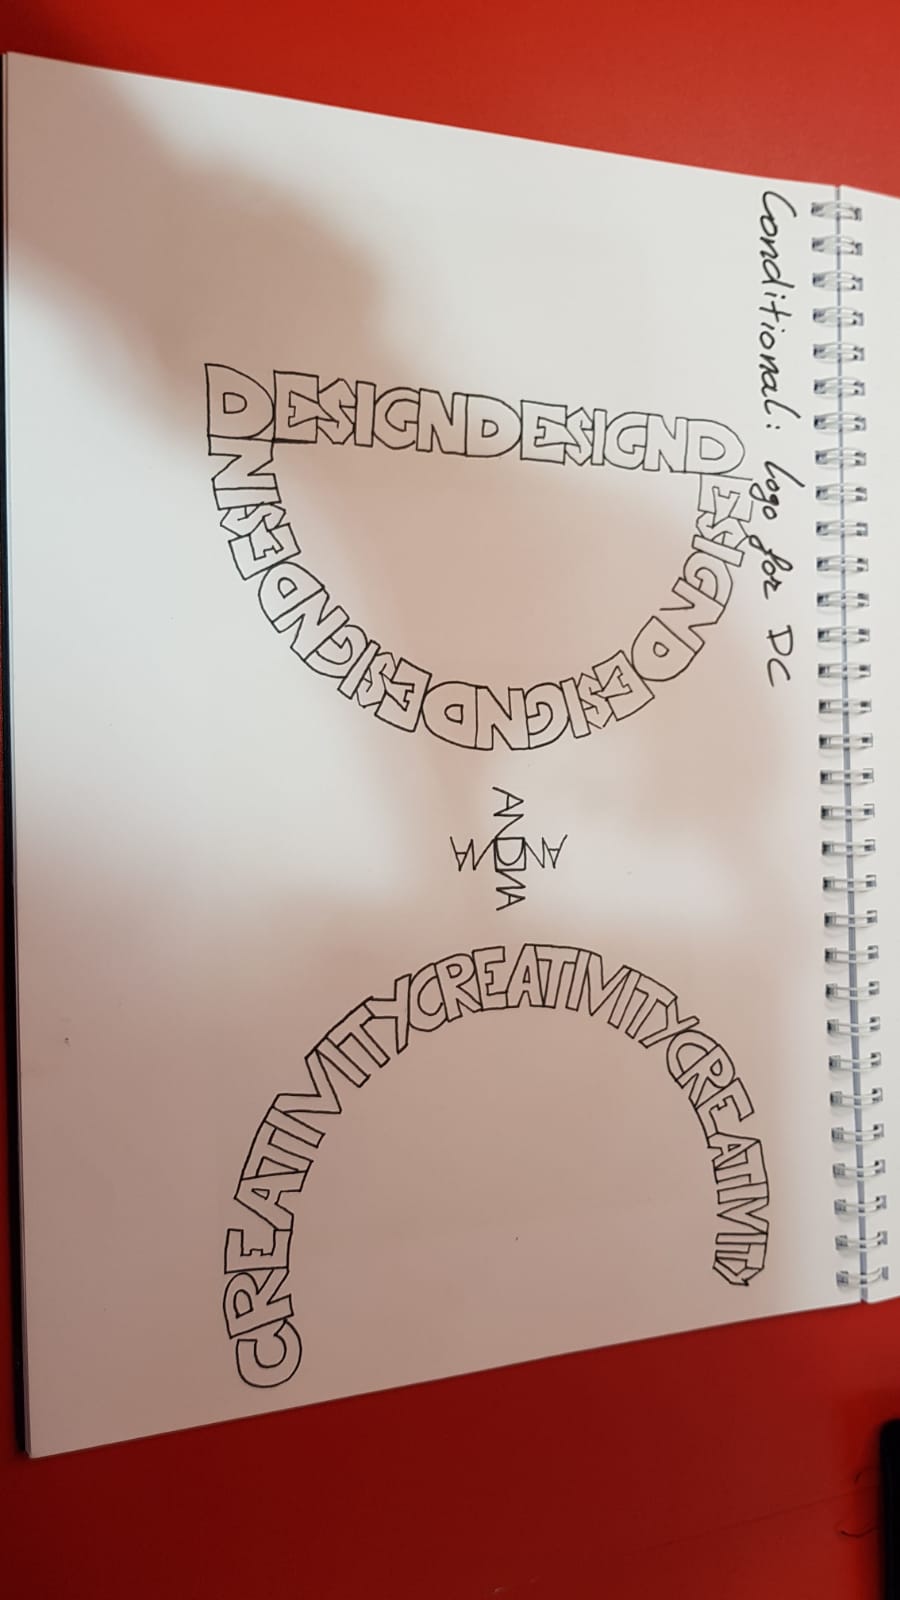 Conditional: logo for DC
DESIGNDESIGND
ESIGNDESIGNDESIGNDESIN
AND
CREATIVITYCREATIVITYCREATIVITY